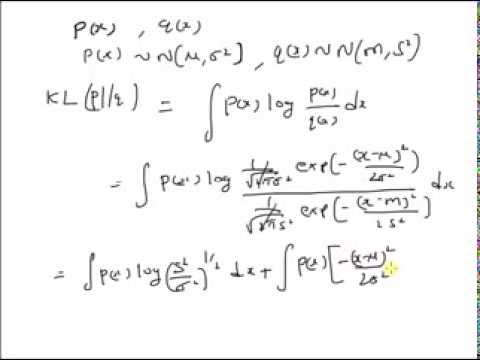 p(x) , q(x)
p(x) ~ N(μ, σ²) , q(x) ~ N(m, s²)
KL(p||q) = ∫ p(x) log p(x)/q(x) dx
= ∫ p(x) log (1/√(2πσ²) exp(-(x-μ)²/2σ²)) / (1/√(2πs²) exp(-(x-m)²/2s²)) dx
= ∫ p(x) log (s²/σ²)^{1/2} dx + ∫ p(x) [-(x-μ)²/2σ²